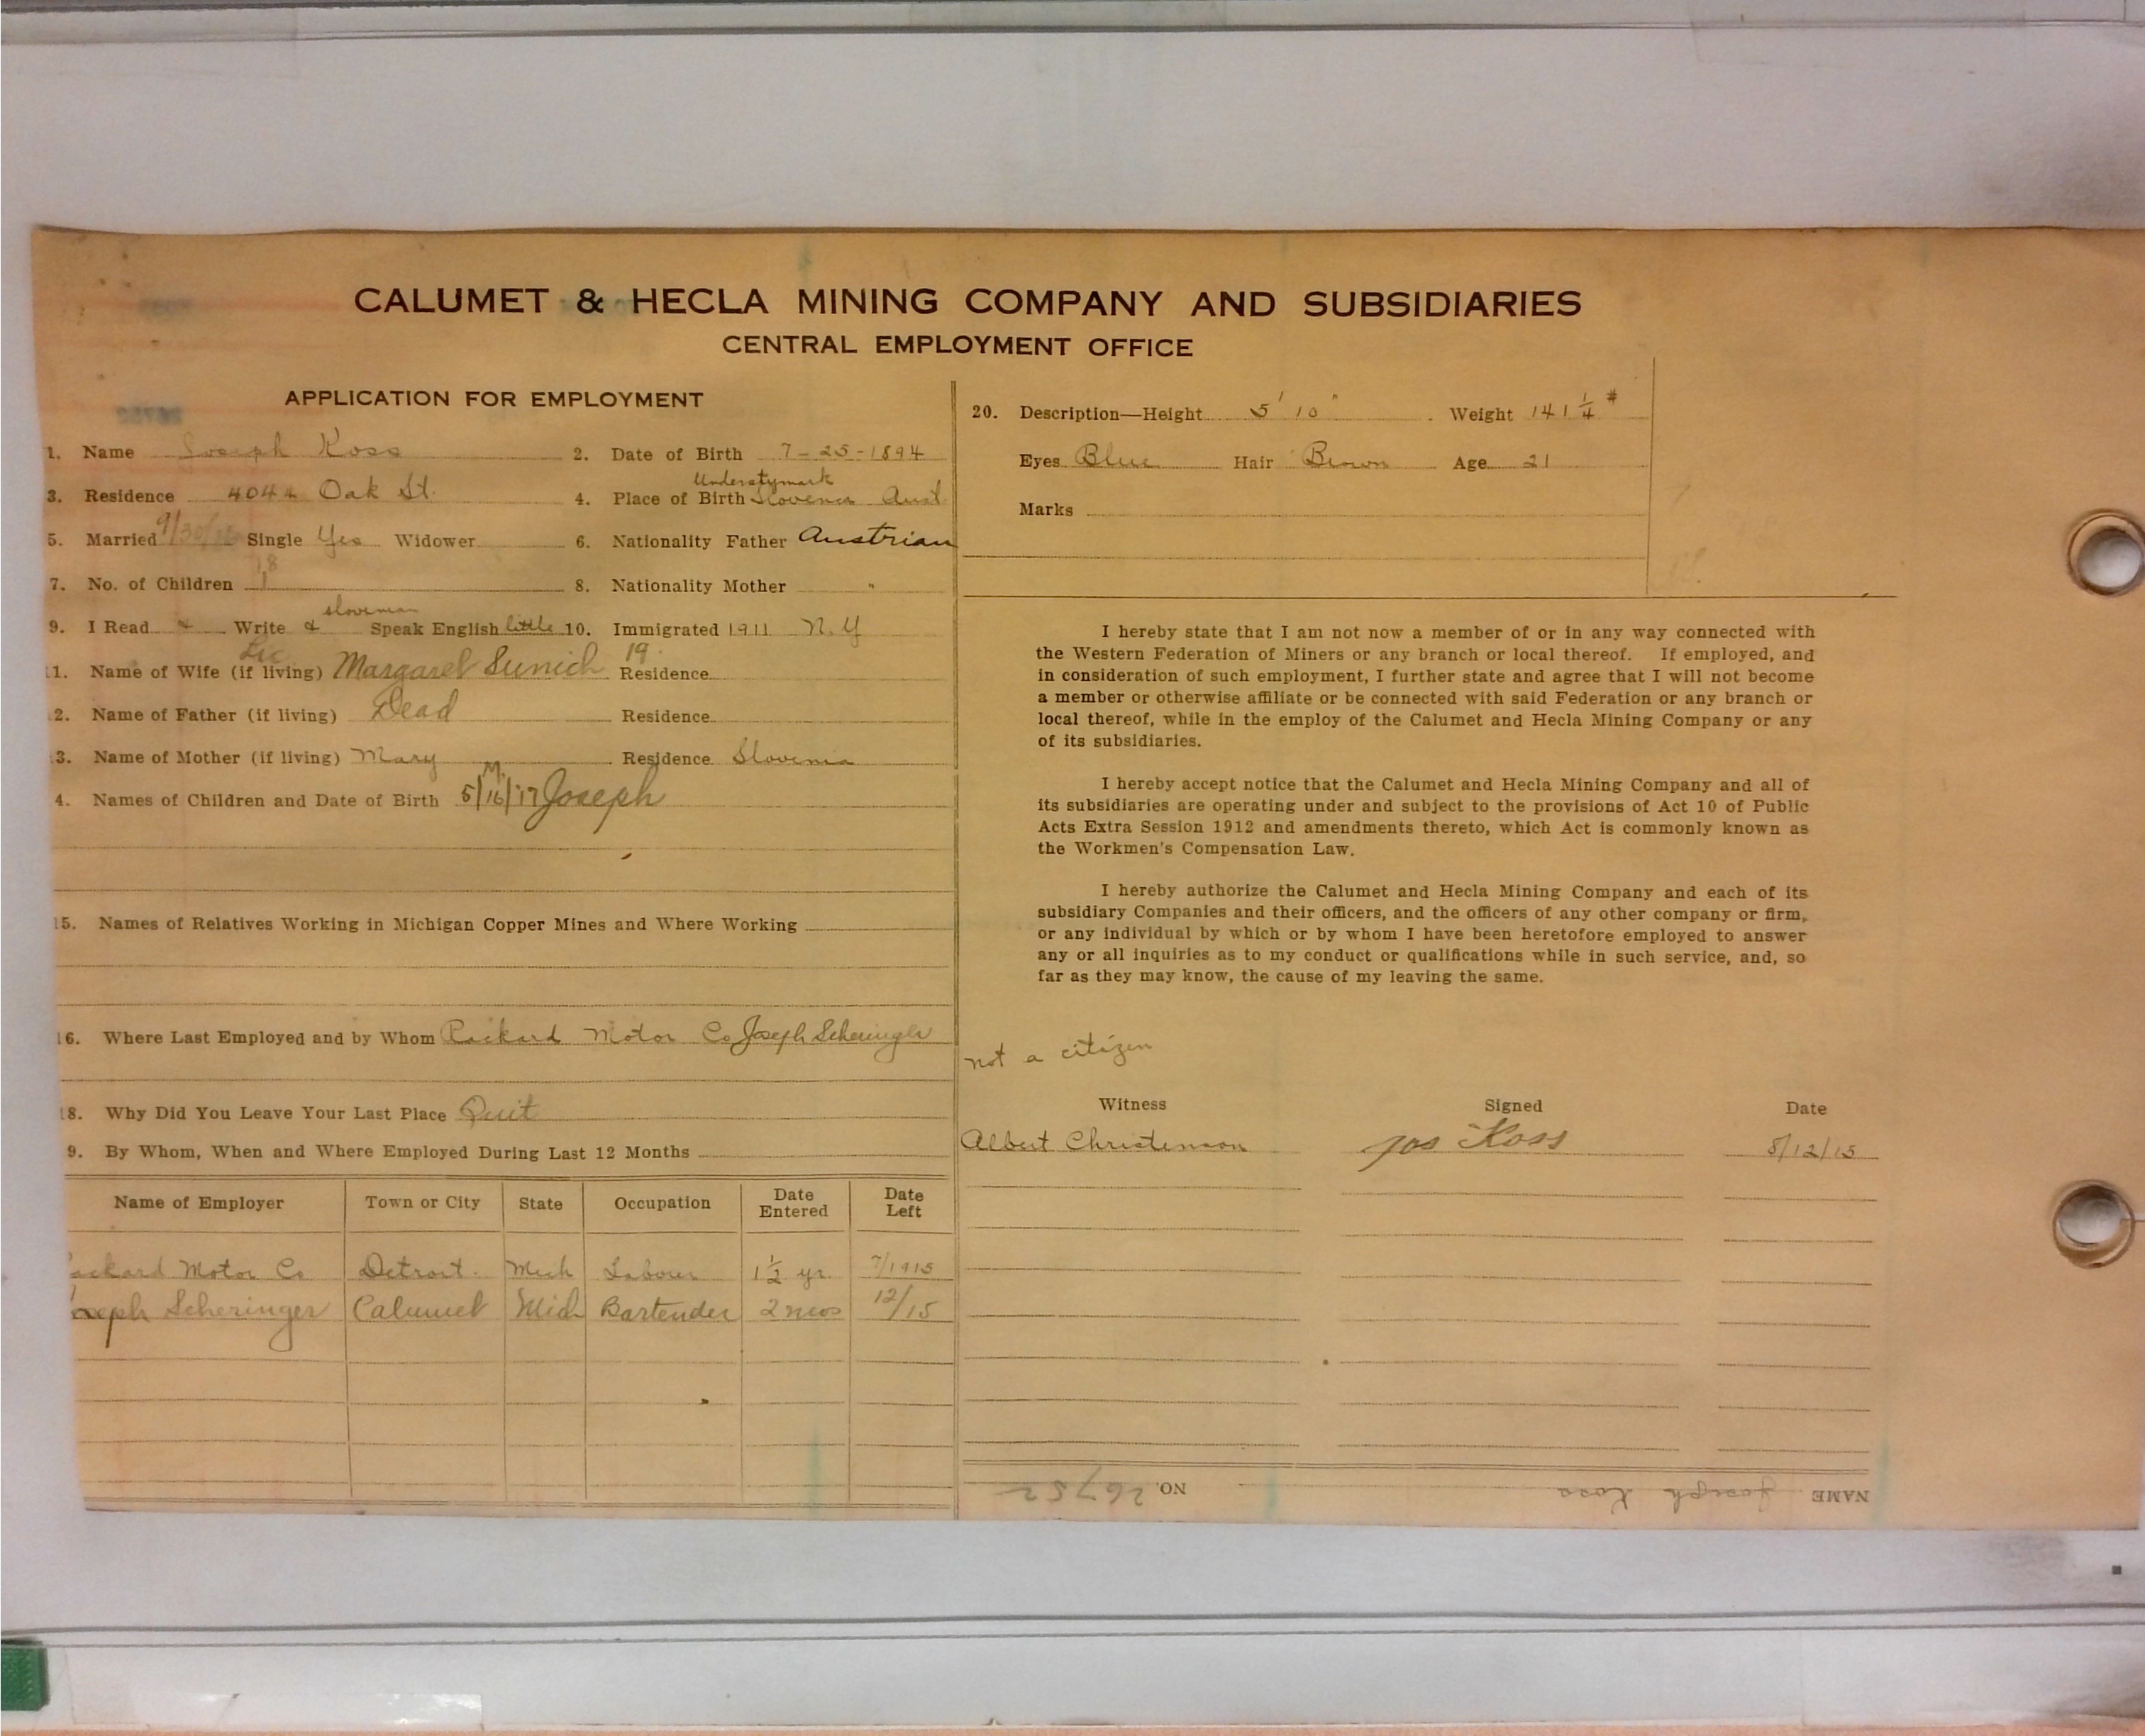 CALUMET & HECLA MINING COMPANY AND SUBSIDIARIES
CENTRAL EMPLOYMENT OFFICE
APPLICATION FOR EMPLOYMENT
1. Name Joseph Koss 2. Date of Birth 7-25-1894
Understymark
3. Residence 4044 Oak St. 4. Place of Birth Slovenia Aust
5. Married 9/30/ Single Yes Widower 6. Nationality Father Austrian
7. No. of Children 1 8. Nationality Mother "
slovenian
9. I Read & Write & Speak English little 10. Immigrated 1911 N.Y
11. Name of Wife (if living) Margaret Sunich 19 Residence
2. Name of Father (if living) Dead Residence
3. Name of Mother (if living) Mary Residence Slovenia
4. Names of Children and Date of Birth 5/16/'17 M. Joseph
15. Names of Relatives Working in Michigan Copper Mines and Where Working
16. Where Last Employed and by Whom Packard Motor Co Joseph Scheringer
18. Why Did You Leave Your Last Place Quit
9. By Whom, When and Where Employed During Last 12 Months
Name of Employer Town or City State Occupation Date Entered Date Left
ackard Motor Co Detroit. Mich Labour 1½ yr. 7/1915
oseph Scheringer Calumet Mich Bartender 2 mos 12/15
20. Description—Height 5' 10" Weight 141¼ #
Eyes Blue Hair Brown Age 21
Marks
I hereby state that I am not now a member of or in any way connected with
the Western Federation of Miners or any branch or local thereof. If employed, and
in consideration of such employment, I further state and agree that I will not become
a member or otherwise affiliate or be connected with said Federation or any branch or
local thereof, while in the employ of the Calumet and Hecla Mining Company or any
of its subsidiaries.
I hereby accept notice that the Calumet and Hecla Mining Company and all of
its subsidiaries are operating under and subject to the provisions of Act 10 of Public
Acts Extra Session 1912 and amendments thereto, which Act is commonly known as
the Workmen's Compensation Law.
I hereby authorize the Calumet and Hecla Mining Company and each of its
subsidiary Companies and their officers, and the officers of any other company or firm,
or any individual by which or by whom I have been heretofore employed to answer
any or all inquiries as to my conduct or qualifications while in such service, and, so
far as they may know, the cause of my leaving the same.
not a citizen
Witness Signed Date
Albert Christenson Jos Koss 8/12/15
NAME Joseph Koss NO. 26752